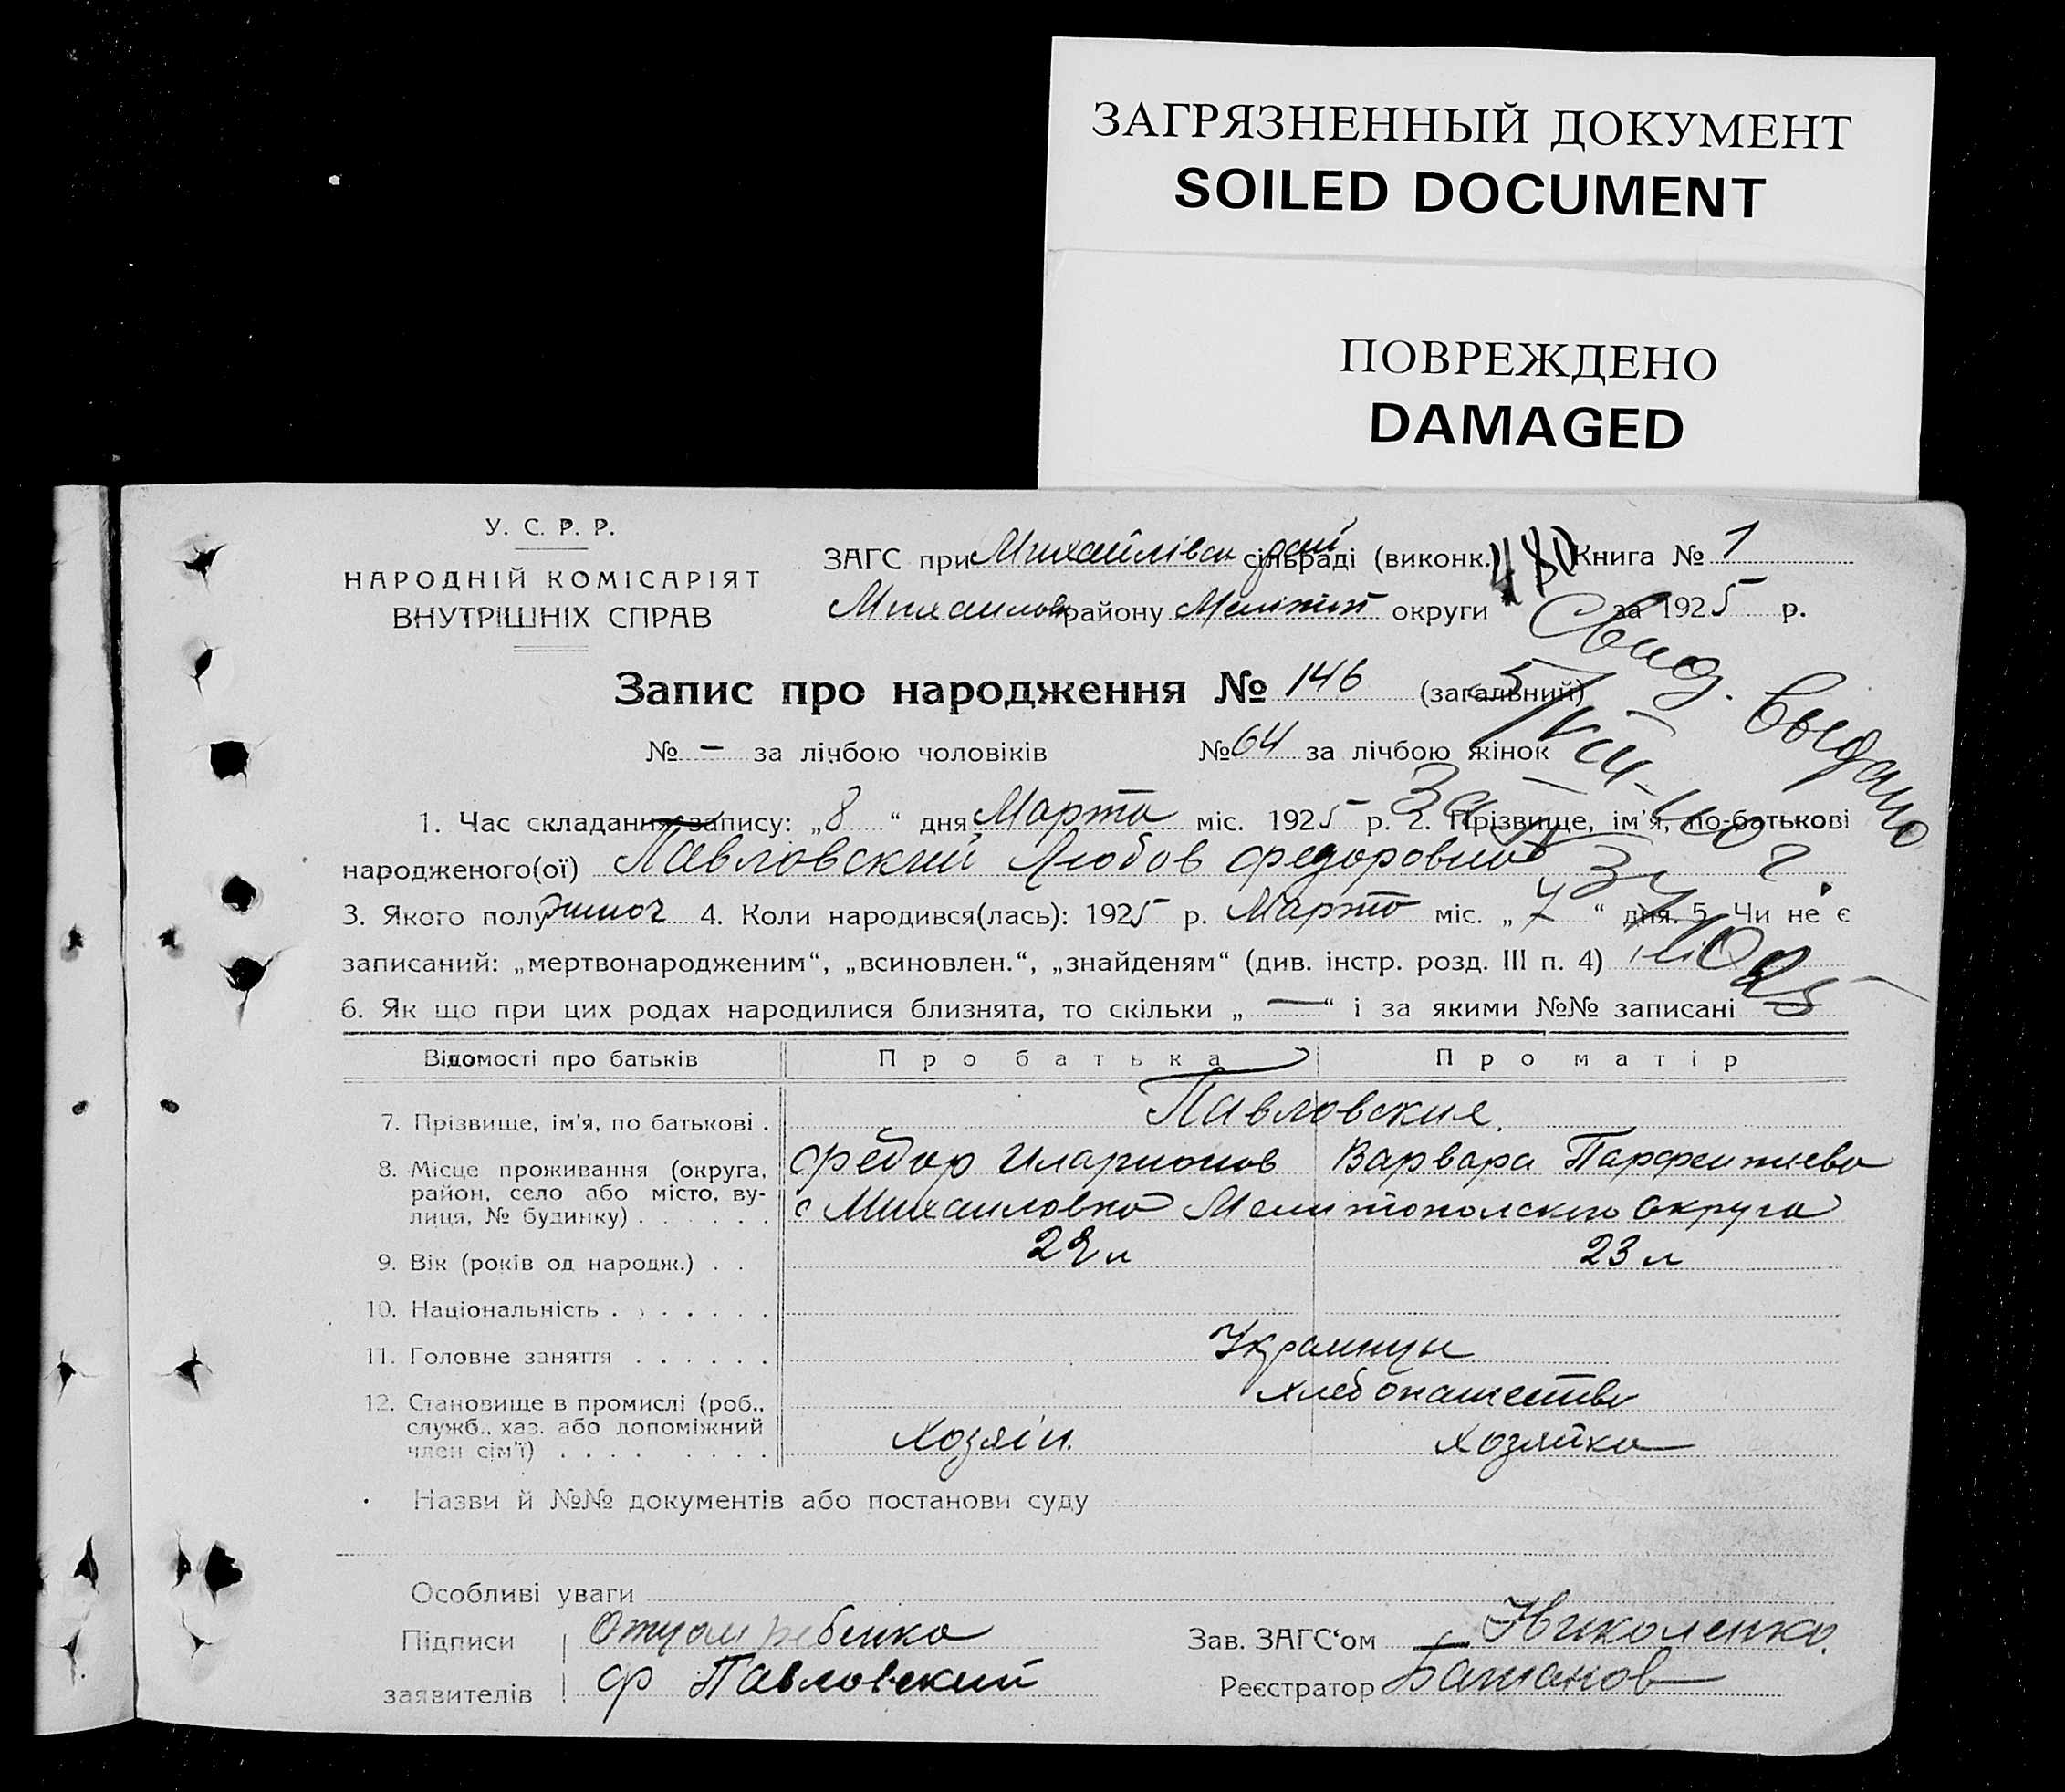 ЗАГРЯЗНЕННЫЙ ДОКУМЕНТ
SOILED DOCUMENT
ПОВРЕЖДЕНО
DAMAGED
У. С. Р. Р.
НАРОДНІЙ КОМІСАРІЯТ
ВНУТРІШНІХ СПРАВ
ЗАГС при Михайлівск рай сільраді (виконк.) 480 Книга № 1
Михаилов району Меліт округи за 1925 р.
Свид. выдано
Запис про народження № 146 (загальний)
№ – за лічбою чоловіків № 64 за лічбою жінок
1. Час складання запису: „8“ дня Марта міс. 1925 р. 2. Прізвище, ім'я, по-батькові
народженого(ої) Павловский Любов Федоровна
3. Якого полу 4. Коли народився(лась): 1925 р. Марта міс. „7“ дня. 5. Чи не є
записаний: „мертвонародженим“, „всиновлен.“, „знайденям“ (див. інстр. розд. III п. 4)
6. Як що при цих родах народилися близнята, то скільки „—“ і за якими №№ записані
Відомості про батьків Про батька Про матір
7. Прізвище, ім'я, по батькові . Павловские.
8. Місце проживання (округа, район, село або місто, вулиця, № будинку) . . . . . . Федор Иларионов Варвара Парфентиева
с Михаиловка Мелитополского округа
9. Вік (років од народж.) . . 28 л 23 л
10. Національність . . . . . . .
11. Головне заняття . . . . . . Украинцы
12. Становище в промислі (роб., служб., хаз. або допоміжний член сім'ї) . . . . . . . . хлебопашество
Хозяін. хозяйка
Назви й №№ документів або постанови суду
Особливі уваги
Підписи Отцом ребенка Зав. ЗАГС'ом Николенко.
заявителів Ф Павловский Реєстратор Баштанов